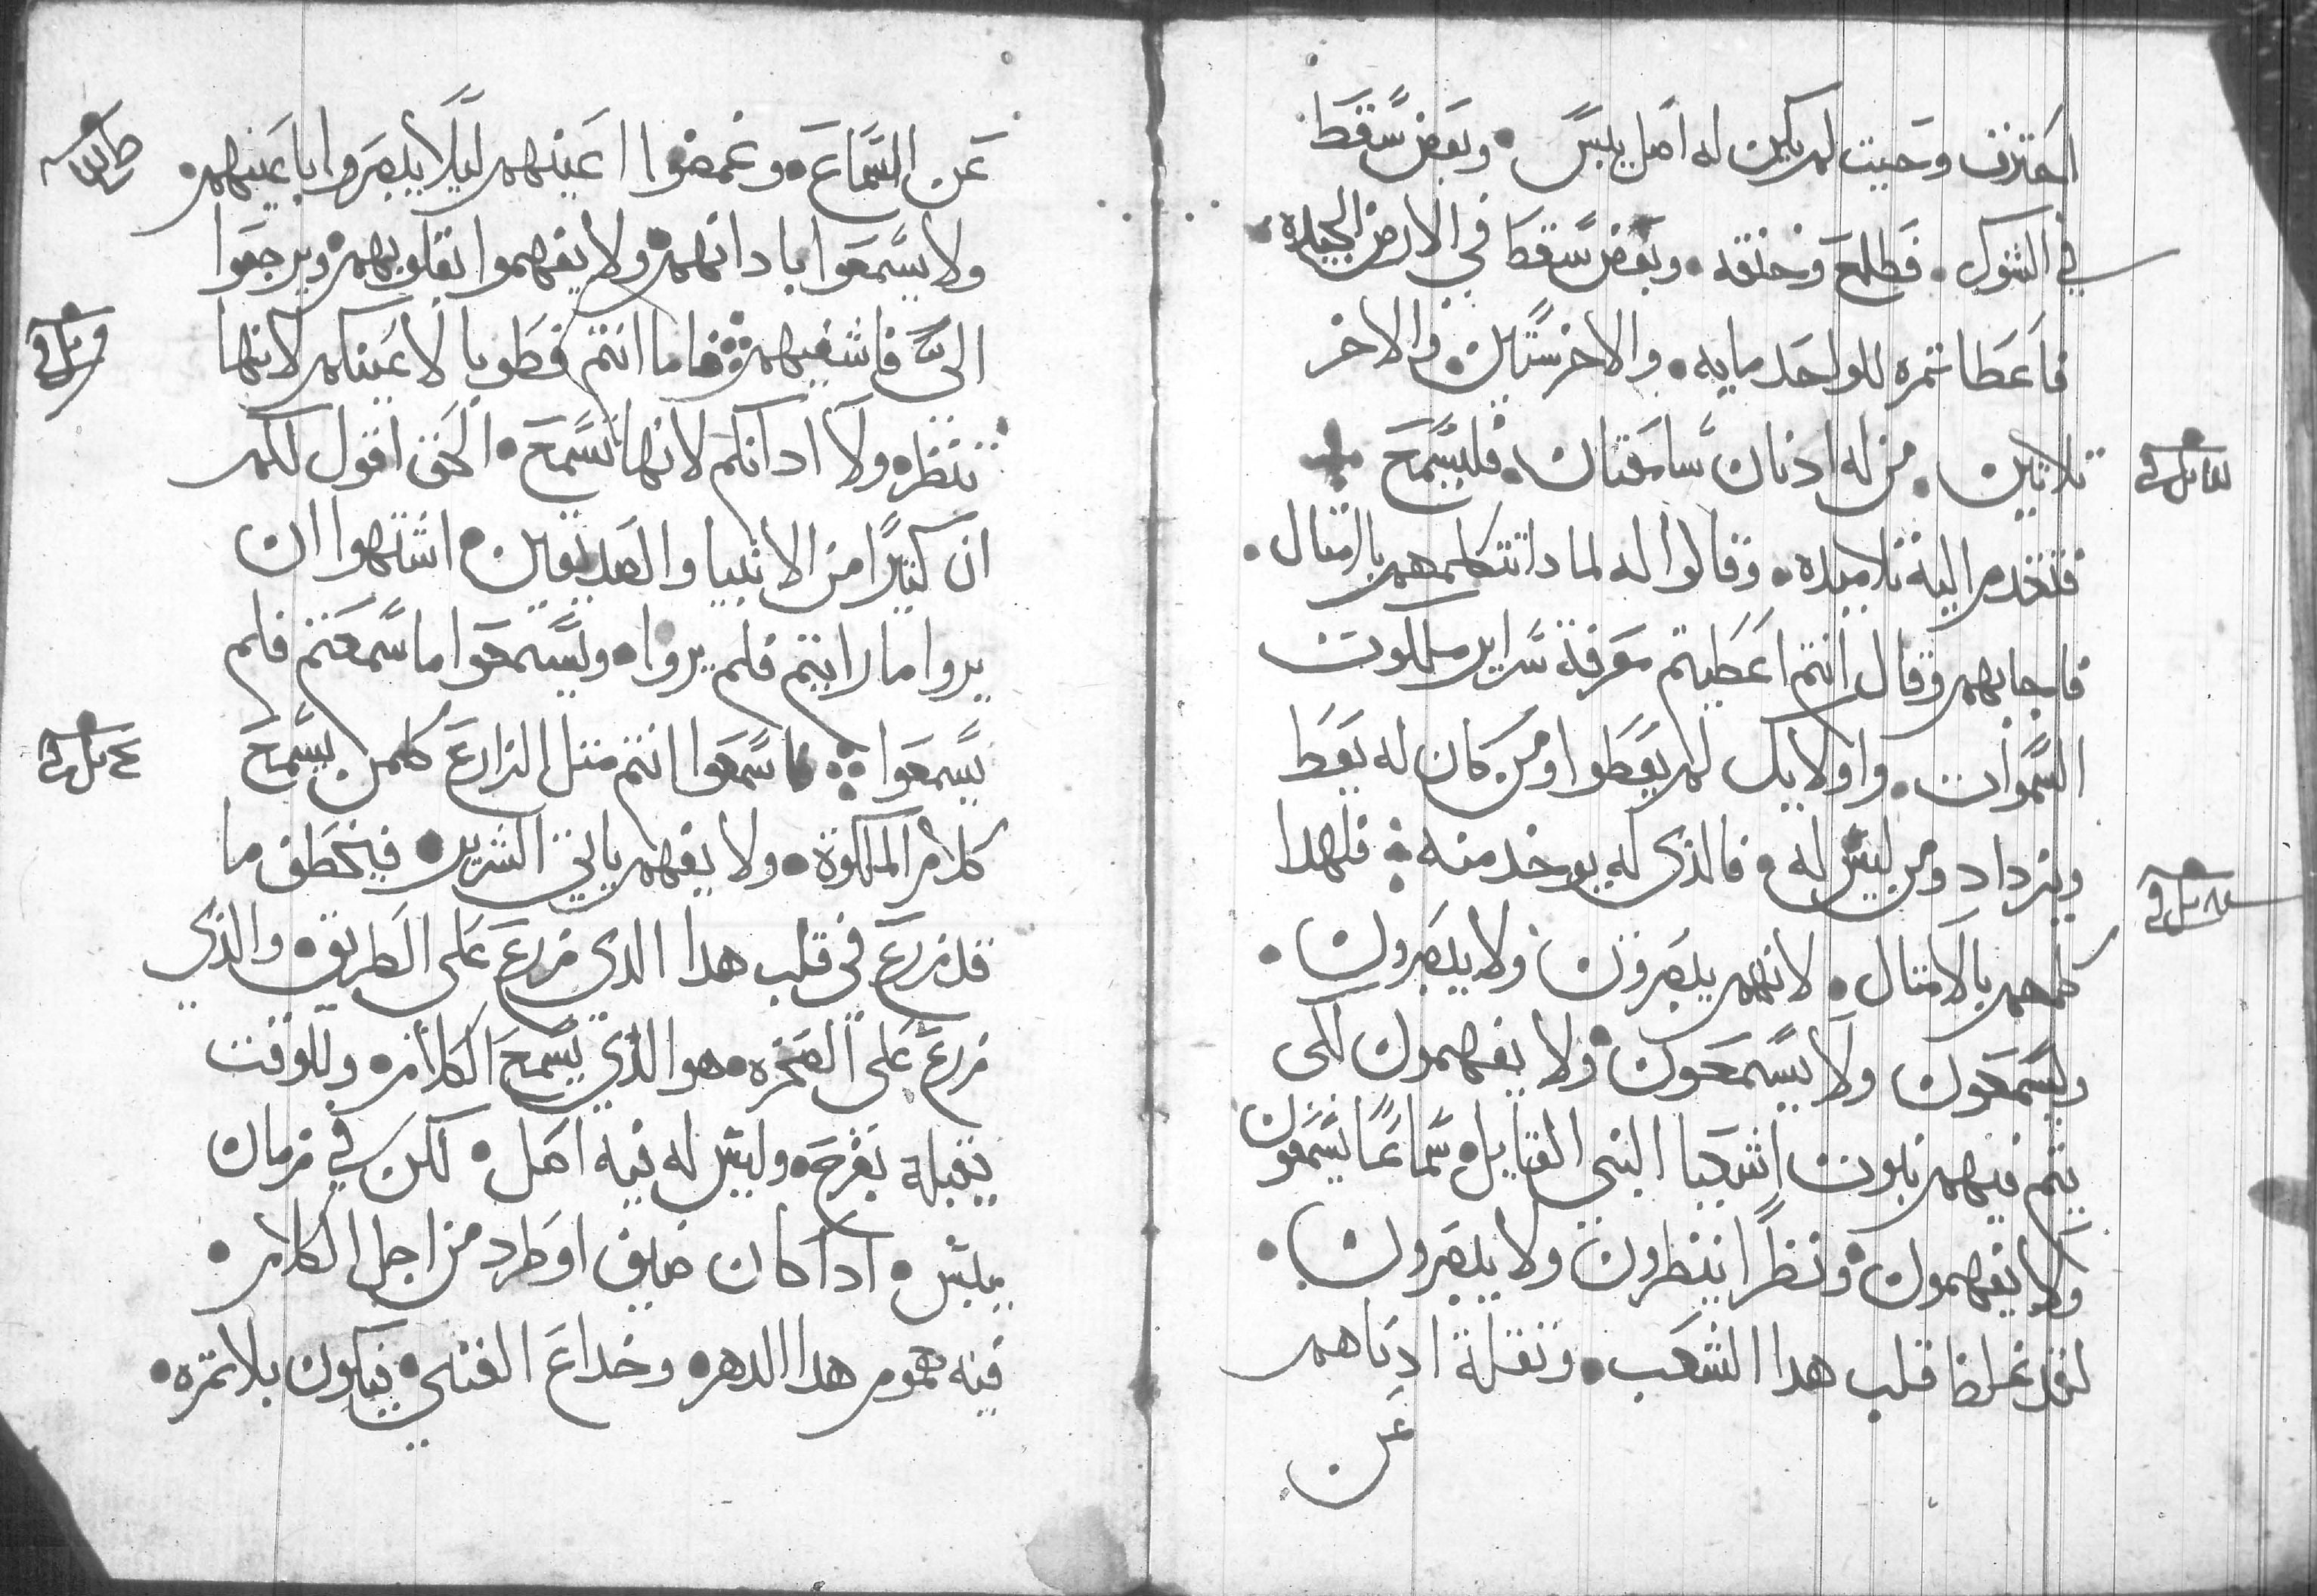 احترق وحيت لم يكن له اصل يبس • وبعض سقط
في الشوك • فطلع وخنقه • وبعض سقط في الارض الجيده •
فاعطا تمره للواحد مايه • والاخر ستين • والاخر
تلاتين • من له اذنان سامعتان • فليسمع
فتقدم اليه تلاميده • وقالوا له لما دا تتكلمهم بالامتال •
فاجابهم وقال انتم اعطيتم معرفة سراير ملكوت
السموات • واولايك لم يعطوا ومن كان له يعط
ويزداد ومن ليس له • فالذي له يوخد منه • فلهدا
كلمهم بالامتال • لانهم يبصرون ولا يبصرون •
ويسمعون ولا يسمعون • ولا يفهمون لكى
يتم فيهم نبوت اشعيا النبي القايل • سماعًا يسمعون
ولا يفهمون • ونظرًا ينظرون ولا يبصرون •
لقد غلظ قلب هدا الشعب • وتقلة اذناهم
عن
عن السماع • وغمضوا اعينهم ليلًا يبصروا باعينهم •
ولا يسمعوا بادانهم • ولا يفهموا بقلوبهم • ويرجعوا
الىّ فاشفيهم • فاما انتم فطوبا لاعينكم لانها
تنظر • ولا ادانكم لانها تسمع • الحق اقول لكم
ان كتيرًا من الانبيا والصديقين • اشتهوا ان
يروا ما رايتم فلم يروا • ويسمعوا ما سمعتم فلم
يسمعوا • فاسمعوا انتم متل الزارع كلمن يسمع
كلام الملكوة • ولا يفهم ياتي الشرير • فيخطف ما
قد زرع في قلب هدا الدي زرع على الطريق • والذي
زرع على الصخره • هو الذي يسمع الكلام • وللوقت
يقبلة بفرح • وليس له فيه اصل • لكن في زمان
يبس • ادا كان ضيق او طرد من اجل الكلام •
فيه هموم هدا الدهر • وخداع الغنى • فيكون بلا تمره •